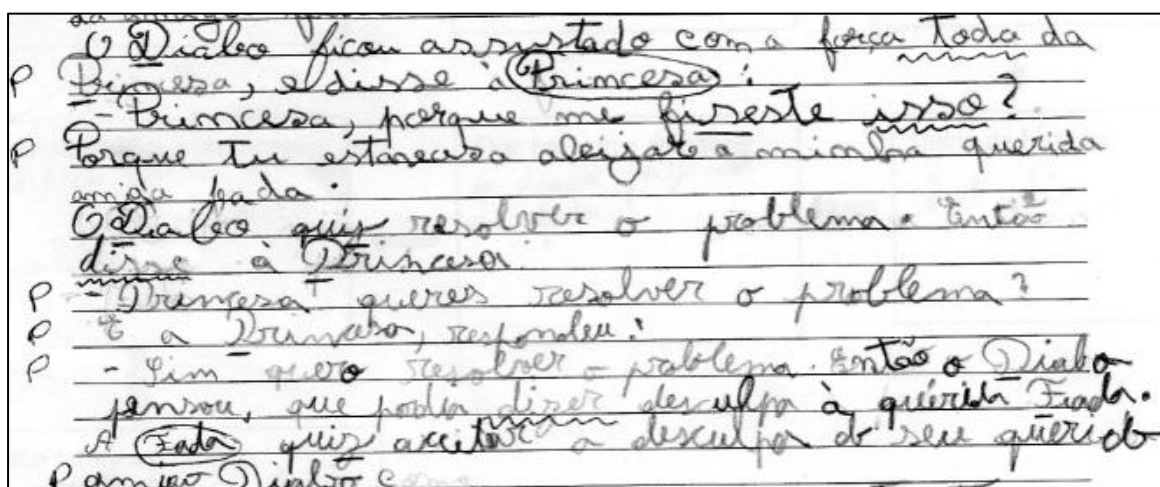 da amiga
O Diabo ficou assustado com a força toda da
P Princesa, e disse à Princesa:
- Princesa, porque me fiseste isso?
P Porque tu estavas a aleijar a minha querida
amiga fada.
O Diabo quis resolver o problema. Então
disse à Princesa.
P - Princesa queres resolver o problema?
P E a Princesa, respondeu:
P - Sim quero resolver o problema. Então o Diabo
pensou, que podia diser desculpa à querida Fada.
A Fada quiz aceitar a desculpa do seu querido
P amigo Diabo como